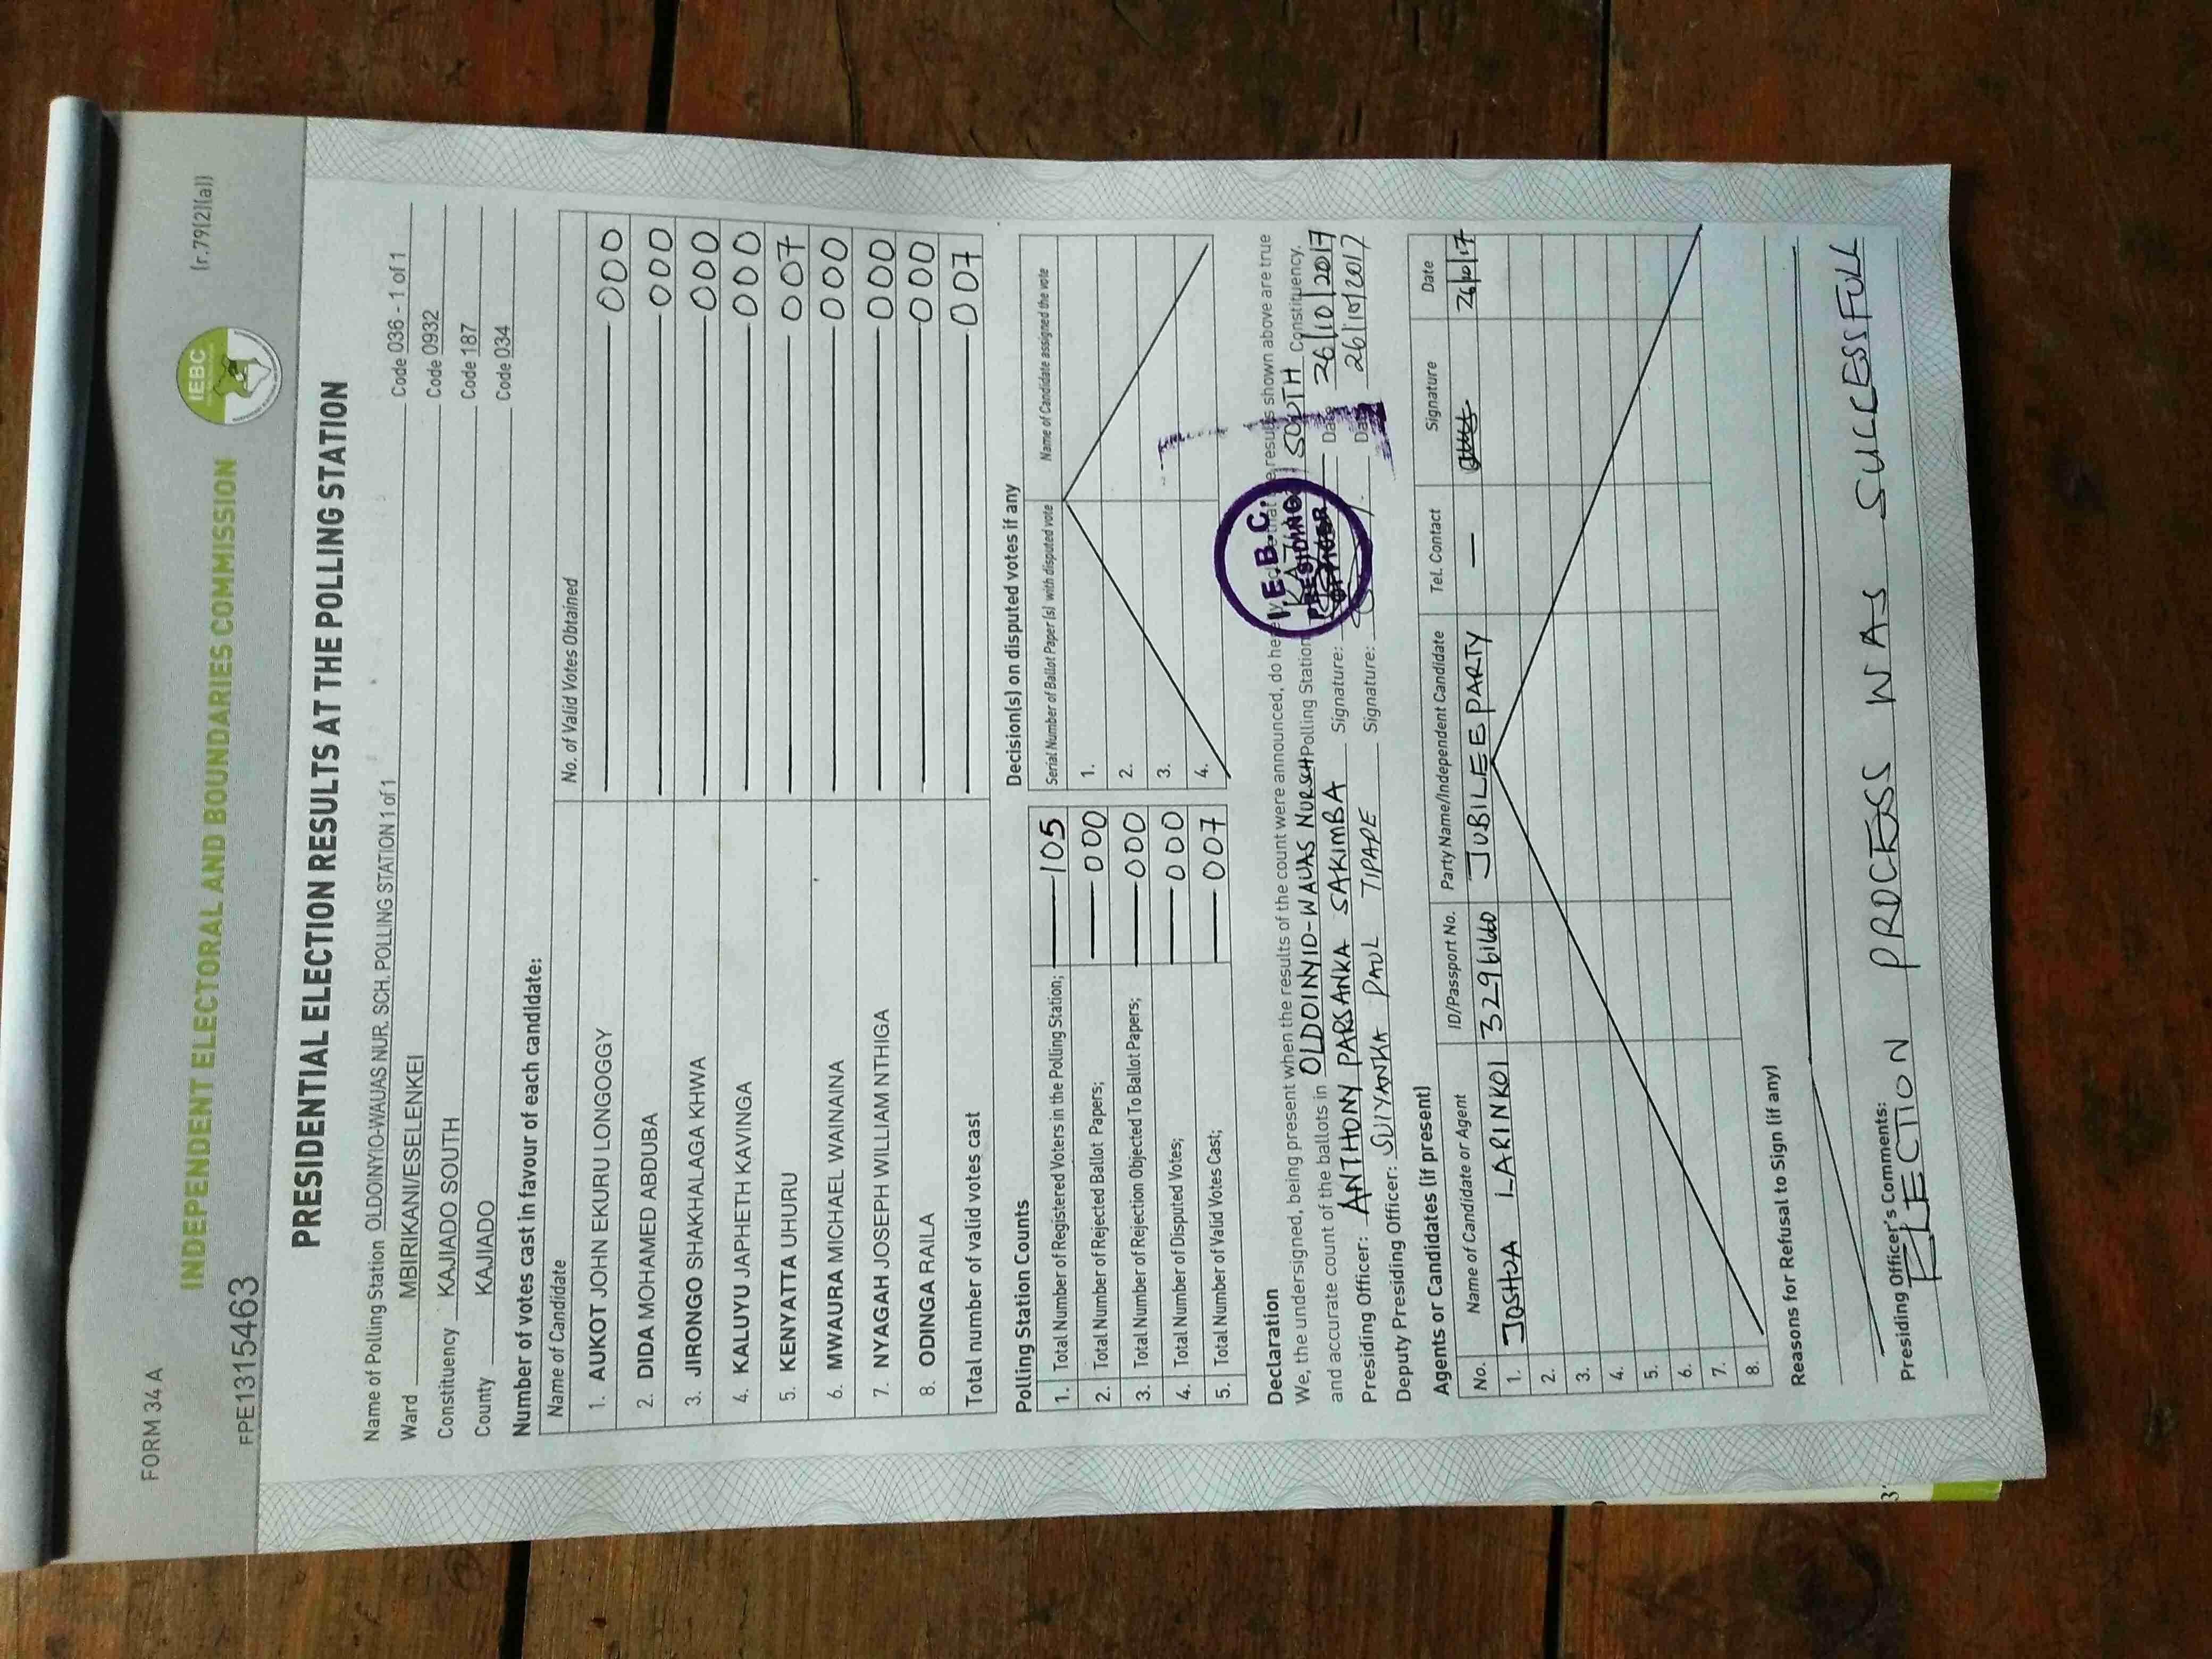 FORM 34 A
(r.79(2)(a))
IEBC
INDEPENDENT ELECTORAL AND BOUNDARIES COMMISSION
FPE1315463
PRESIDENTIAL ELECTION RESULTS AT THE POLLING STATION
Name of Polling Station OLDOINYIO-WAUAS NUR. SCH. POLLING STATION 1 of 1 Code 036 - 1 of 1
Ward MBIRIKANI/ESELENKEI Code 0932
Constituency KAJIADO SOUTH Code 187
County KAJIADO Code 034
Number of votes cast in favour of each candidate:
Name of Candidate No. of Valid Votes Obtained
1. AUKOT JOHN EKURU LONGOGGY 000
2. DIDA MOHAMED ABDUBA 000
3. JIRONGO SHAKHALAGA KHWA 000
4. KALUYU JAPHETH KAVINGA 000
5. KENYATTA UHURU 007
6. MWAURA MICHAEL WAINAINA 000
7. NYAGAH JOSEPH WILLIAM NTHIGA 000
8. ODINGA RAILA 000
Total number of valid votes cast 007
Polling Station Counts
1. Total Number of Registered Voters in the Polling Station; 105
2. Total Number of Rejected Ballot Papers; 000
3. Total Number of Rejection Objected To Ballot Papers; 000
4. Total Number of Disputed Votes; 000
5. Total Number of Valid Votes Cast; 007
Decision(s) on disputed votes if any
Serial Number of Ballot Paper (s) with disputed vote Name of Candidate assigned the vote
1.
2.
3.
4.
Declaration
We, the undersigned, being present when the results of the count were announced, do results shown above are true
and accurate count of the ballots in OLDOINYID-WAUAS NURSCH Polling Station SOUTH Constituency.
Presiding Officer: ANTHONY PARSANKA SAKIMBA Signature: Date 26/10/2017
Deputy Presiding Officer: SUIYANKA PAUL TIPAPE Signature: Date 26/10/2017
I.E.B.C.
PRESIDING
OFFICER
Agents or Candidates (if present)
No. Name of Candidate or Agent ID/Passport No. Party Name/Independent Candidate Tel. Contact Signature Date
1. JOSHUA LARINKOI JUBILEE PARTY — 26/10/17
2.
3.
4.
5.
6.
7.
8.
Reasons for Refusal to Sign (if any)
Presiding Officer's Comments:
ELECTION PROCESS WAS SUCCESSFULL